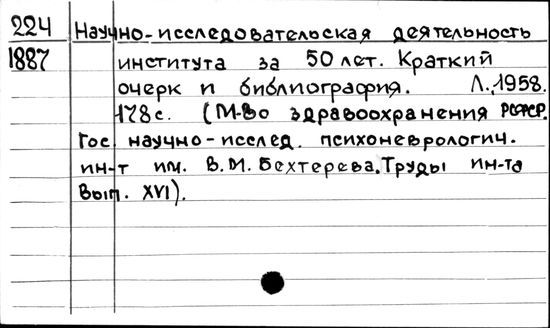 224 Научно-исследовательская деятельность
1887 института за 50 лет. Краткий
очерк и библиография. Л., 1958.
178 с. (М-во здравоохранения РСФСР.
Гос. научно-исслед. психоневрологич.
ин-т им. В.М. Бехтерева. Труды ин-та
Вып. XVI).